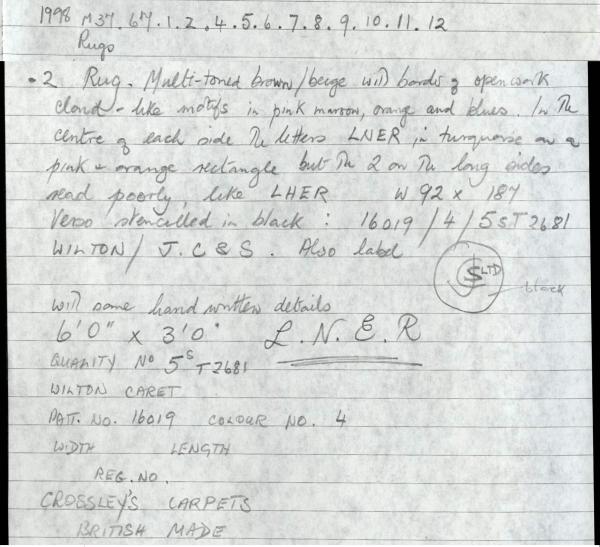 1998 M37. 67.1.2.4.5.6.7.8.9.10.11.12
Rugs
.2 Rug. Multi-toned brown/beige with border of openwork
cloud-like motifs in pink maroon, orange and blues. In the
centre of each side the letters LNER, in turquoise on a
pink + orange rectangle but the 2 on the long sides
read poorly, like LHER W 92 x 187
Verso stencilled in black : 16019 / 4 / 5ST2681
WILTON / J.C & S. Also label
S LTD
black
with some hand written details
6'0" x 3'0" L.N.E.R
QUALITY No 5S T2681
WILTON CARET
PATT. NO. 16019 COLOUR NO. 4
WIDTH LENGTH
REG. NO.
CROSSLEY'S CARPETS
BRITISH MADE